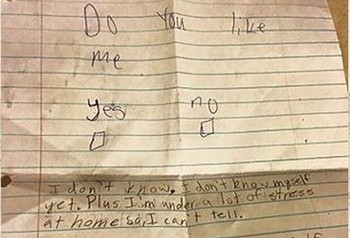 Do You like
me
yes no
I don't know. I don't know myself
yet. Plus I'm under a lot of stress
at home so, I can't tell.